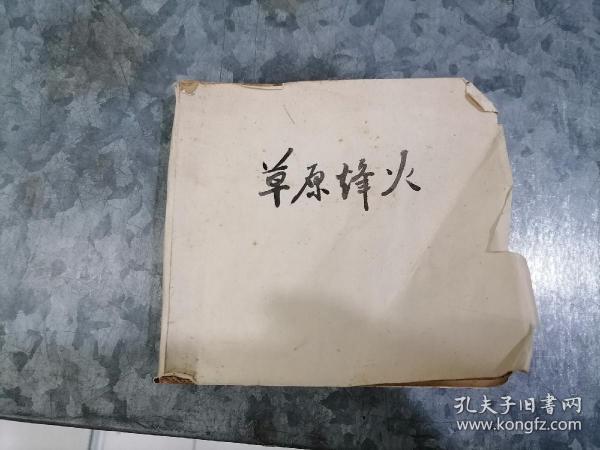 草原烽火
孔夫子旧書网
www.kongfz.com